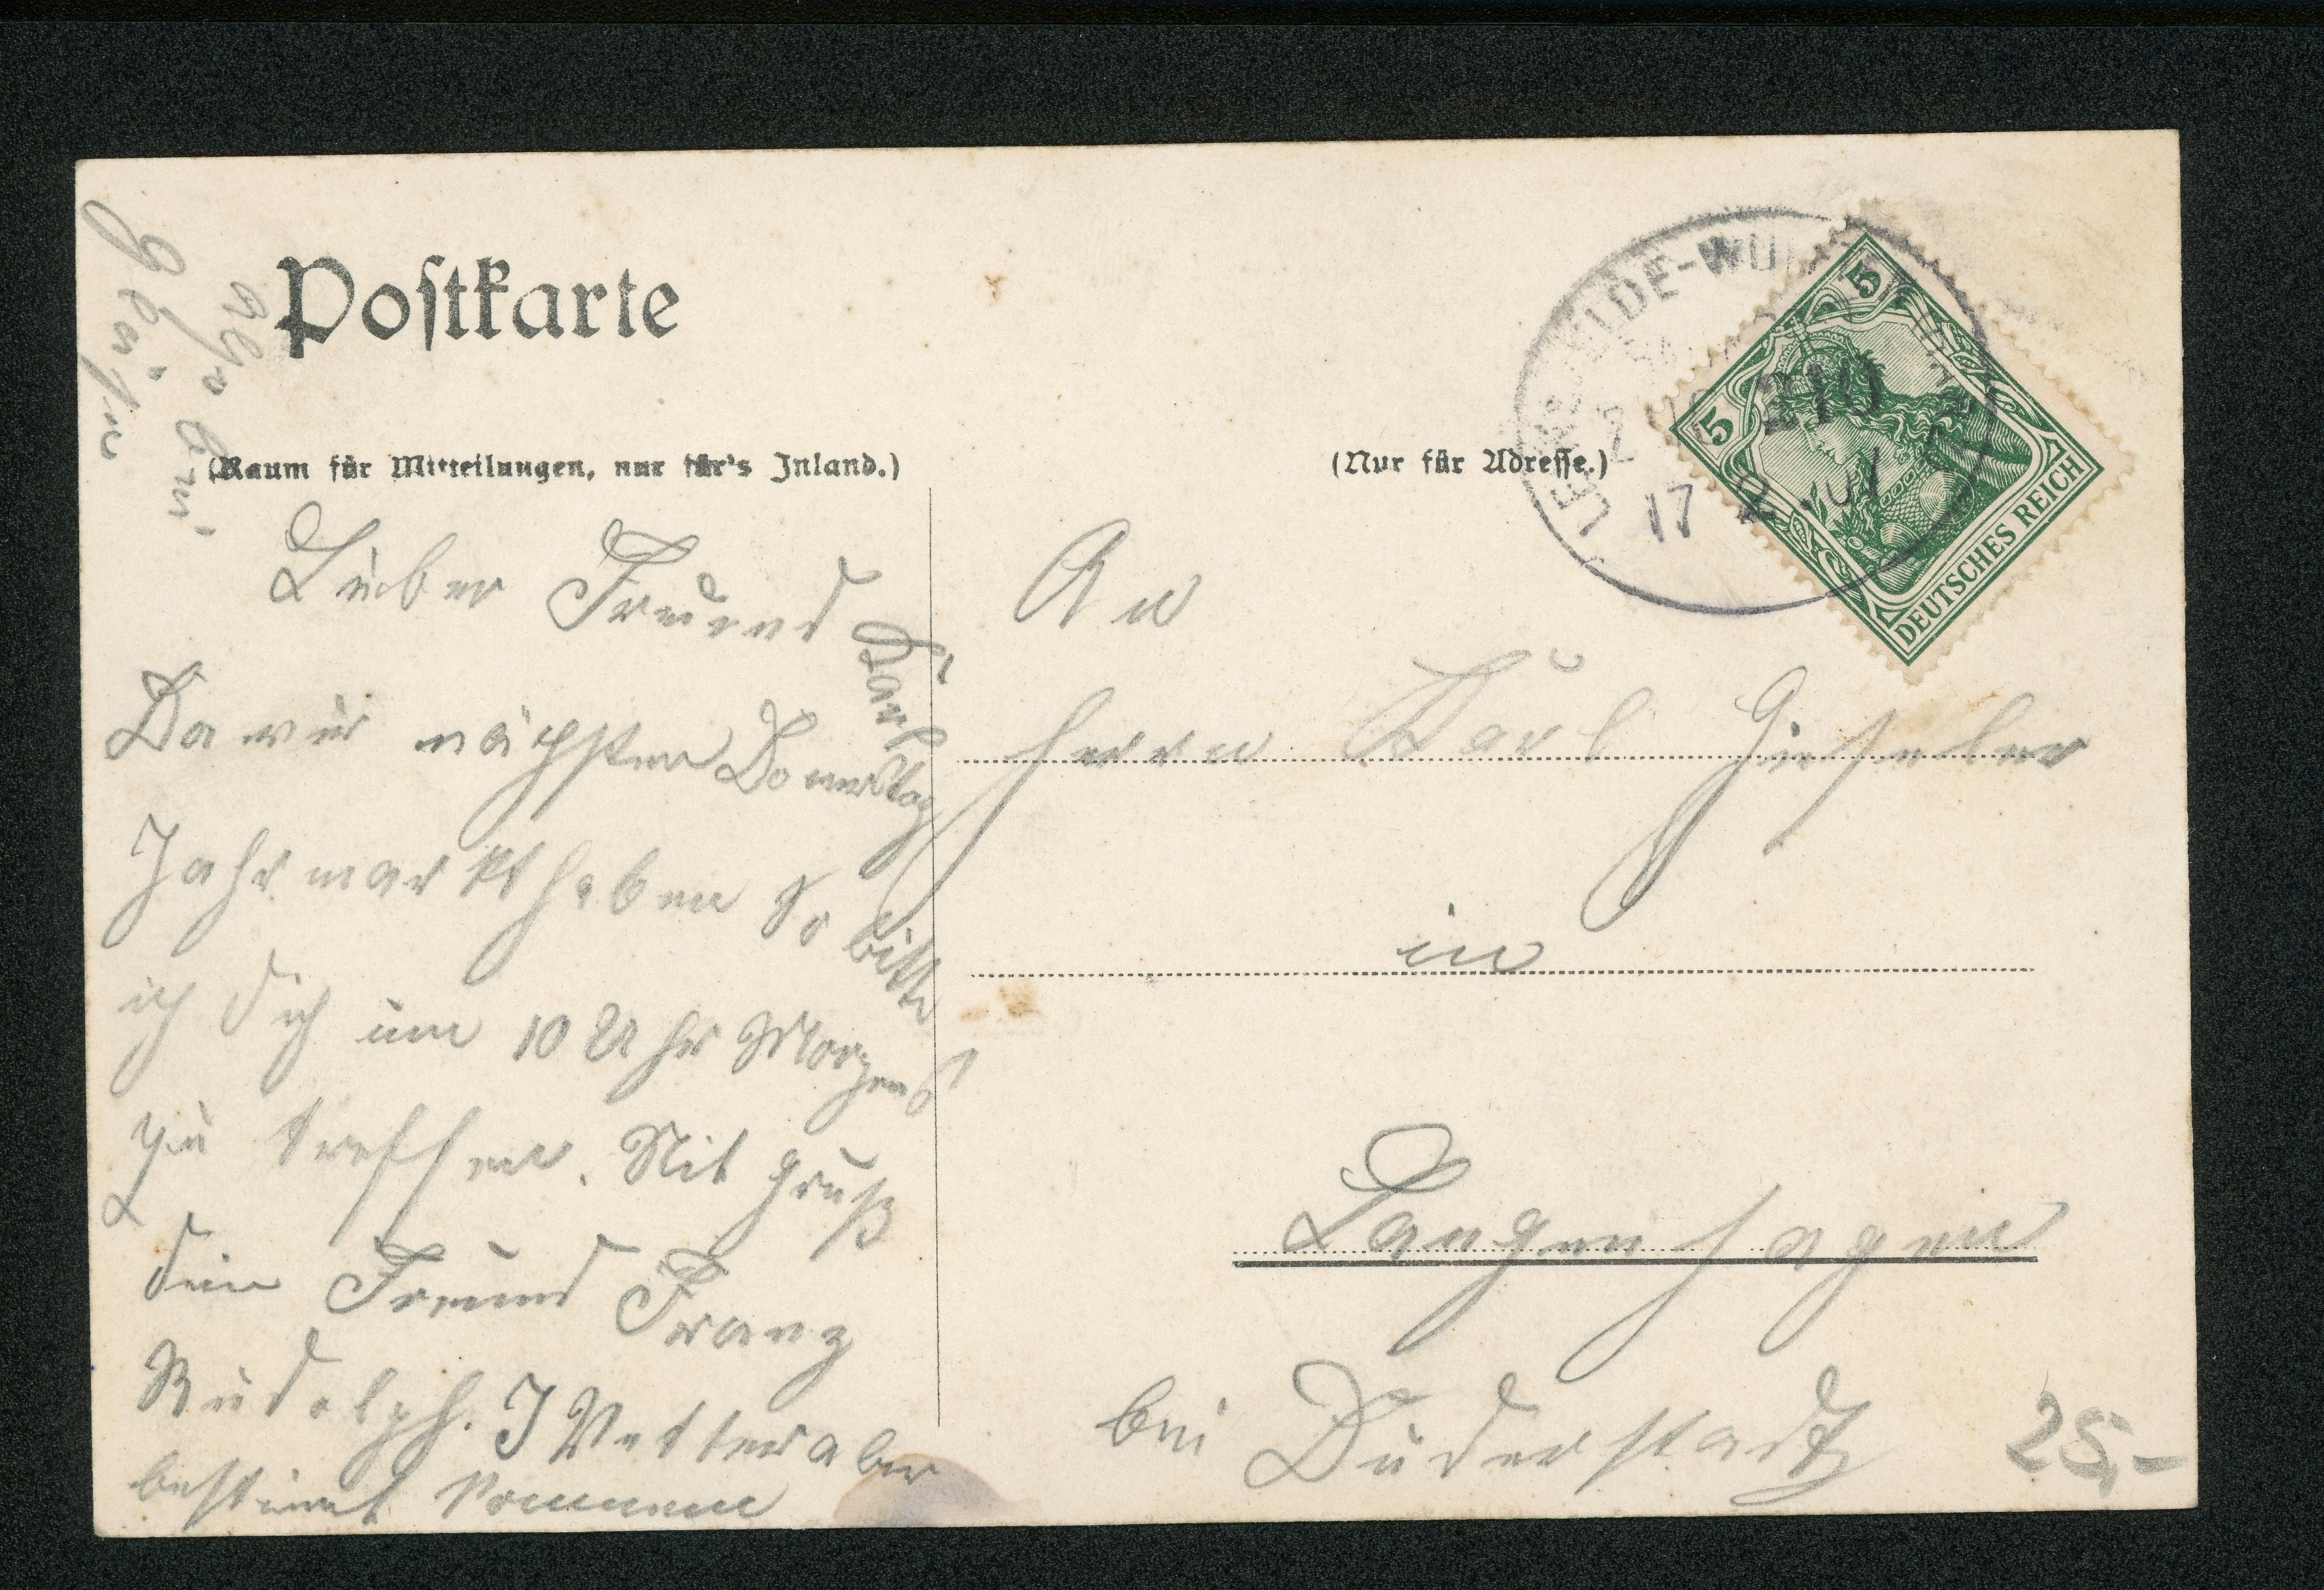 Postkarte
(Raum für Mitteilungen, nur für's Inland.)
(Nur für Adresse.)
5
5
DEUTSCHES REICH
210
17 2
Lieber Freund
Karl
Da wir nächsten Donnerstag
Jahrmarkt haben so bitte
ich dich um 10 Uhr Morgens
zu treffen. Mit Gruß
dein Freund Franz
Rudolph. J Vetter aber
bestimmt kommen
An
Herrn Karl Gieseler
in
Langenhagen
bei Duderstadt
25,-